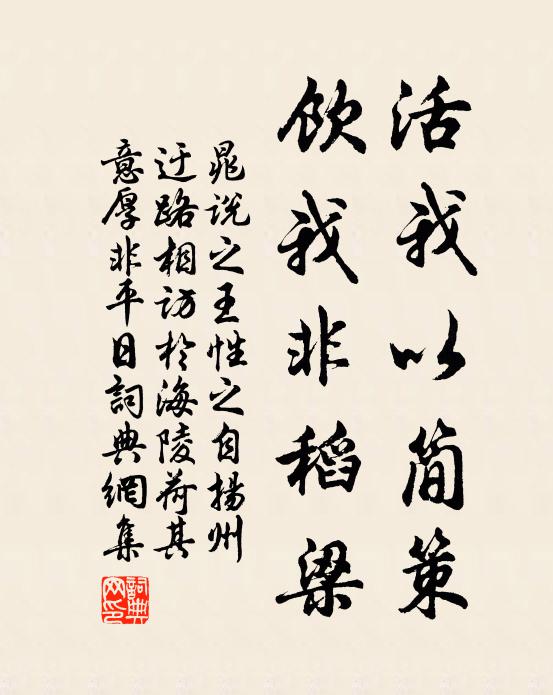 活我以简策
饮我非稻梁
晁说之王性之自揚州
迂路相访於海陵荷其
意厚非平日詞典網集
詞典网印